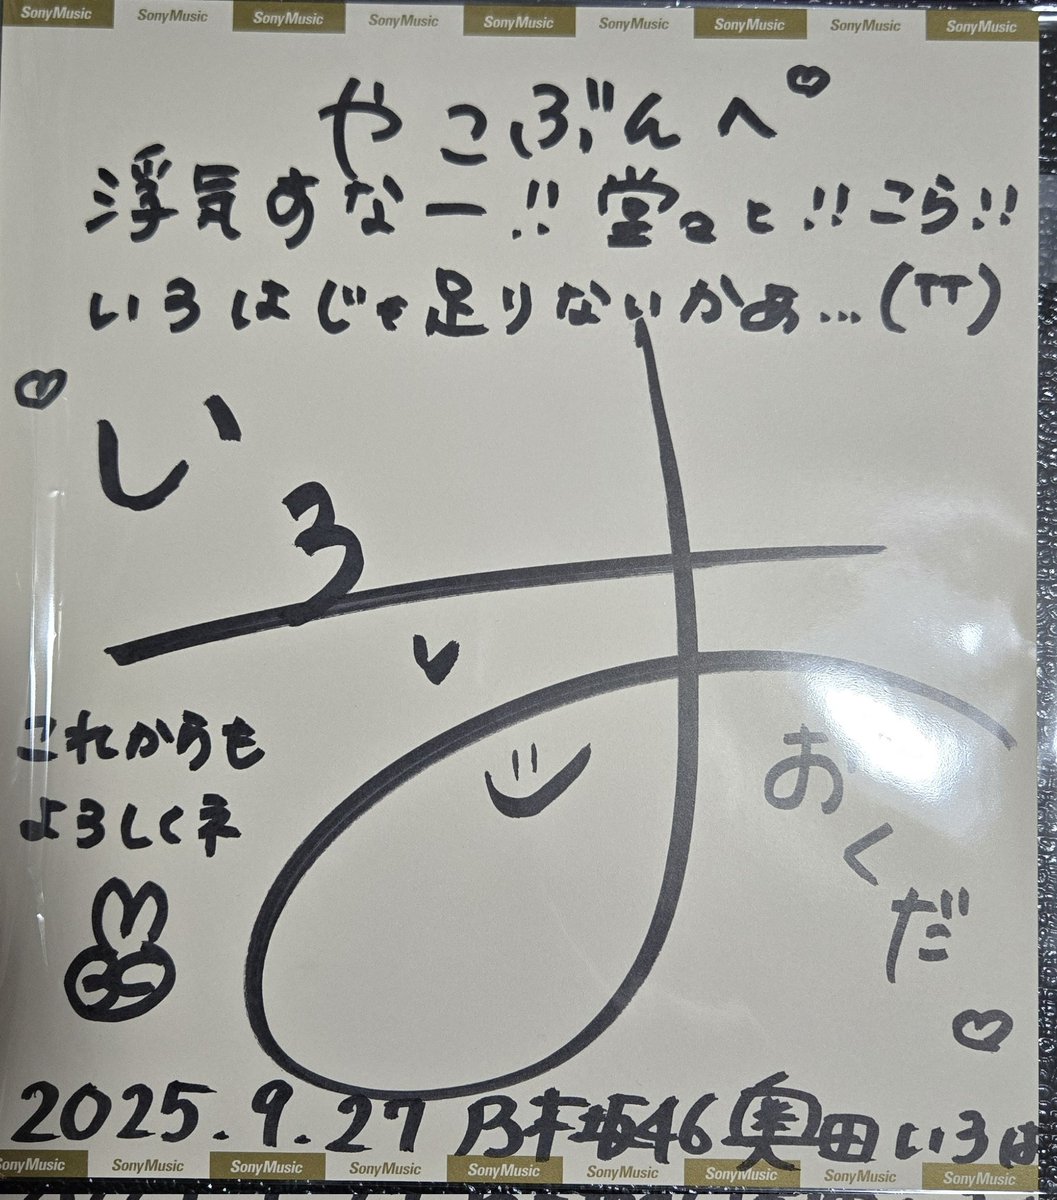 SonyMusic SonyMusic SonyMusic SonyMusic SonyMusic SonyMusic SonyMusic SonyMusic SonyMusic
やこぶんへ♡
浮気すなー!! 堂々と!! こら!!
いろはじゃ足りないかぁ…(TT)
♡
いろは
これからも
よろしくネ
おくだ
♡
2025.9.27 乃木坂46 奥田いろは
SonyMusic SonyMusic SonyMusic SonyMusic SonyMusic SonyMusic SonyMusic SonyMusic SonyMusic